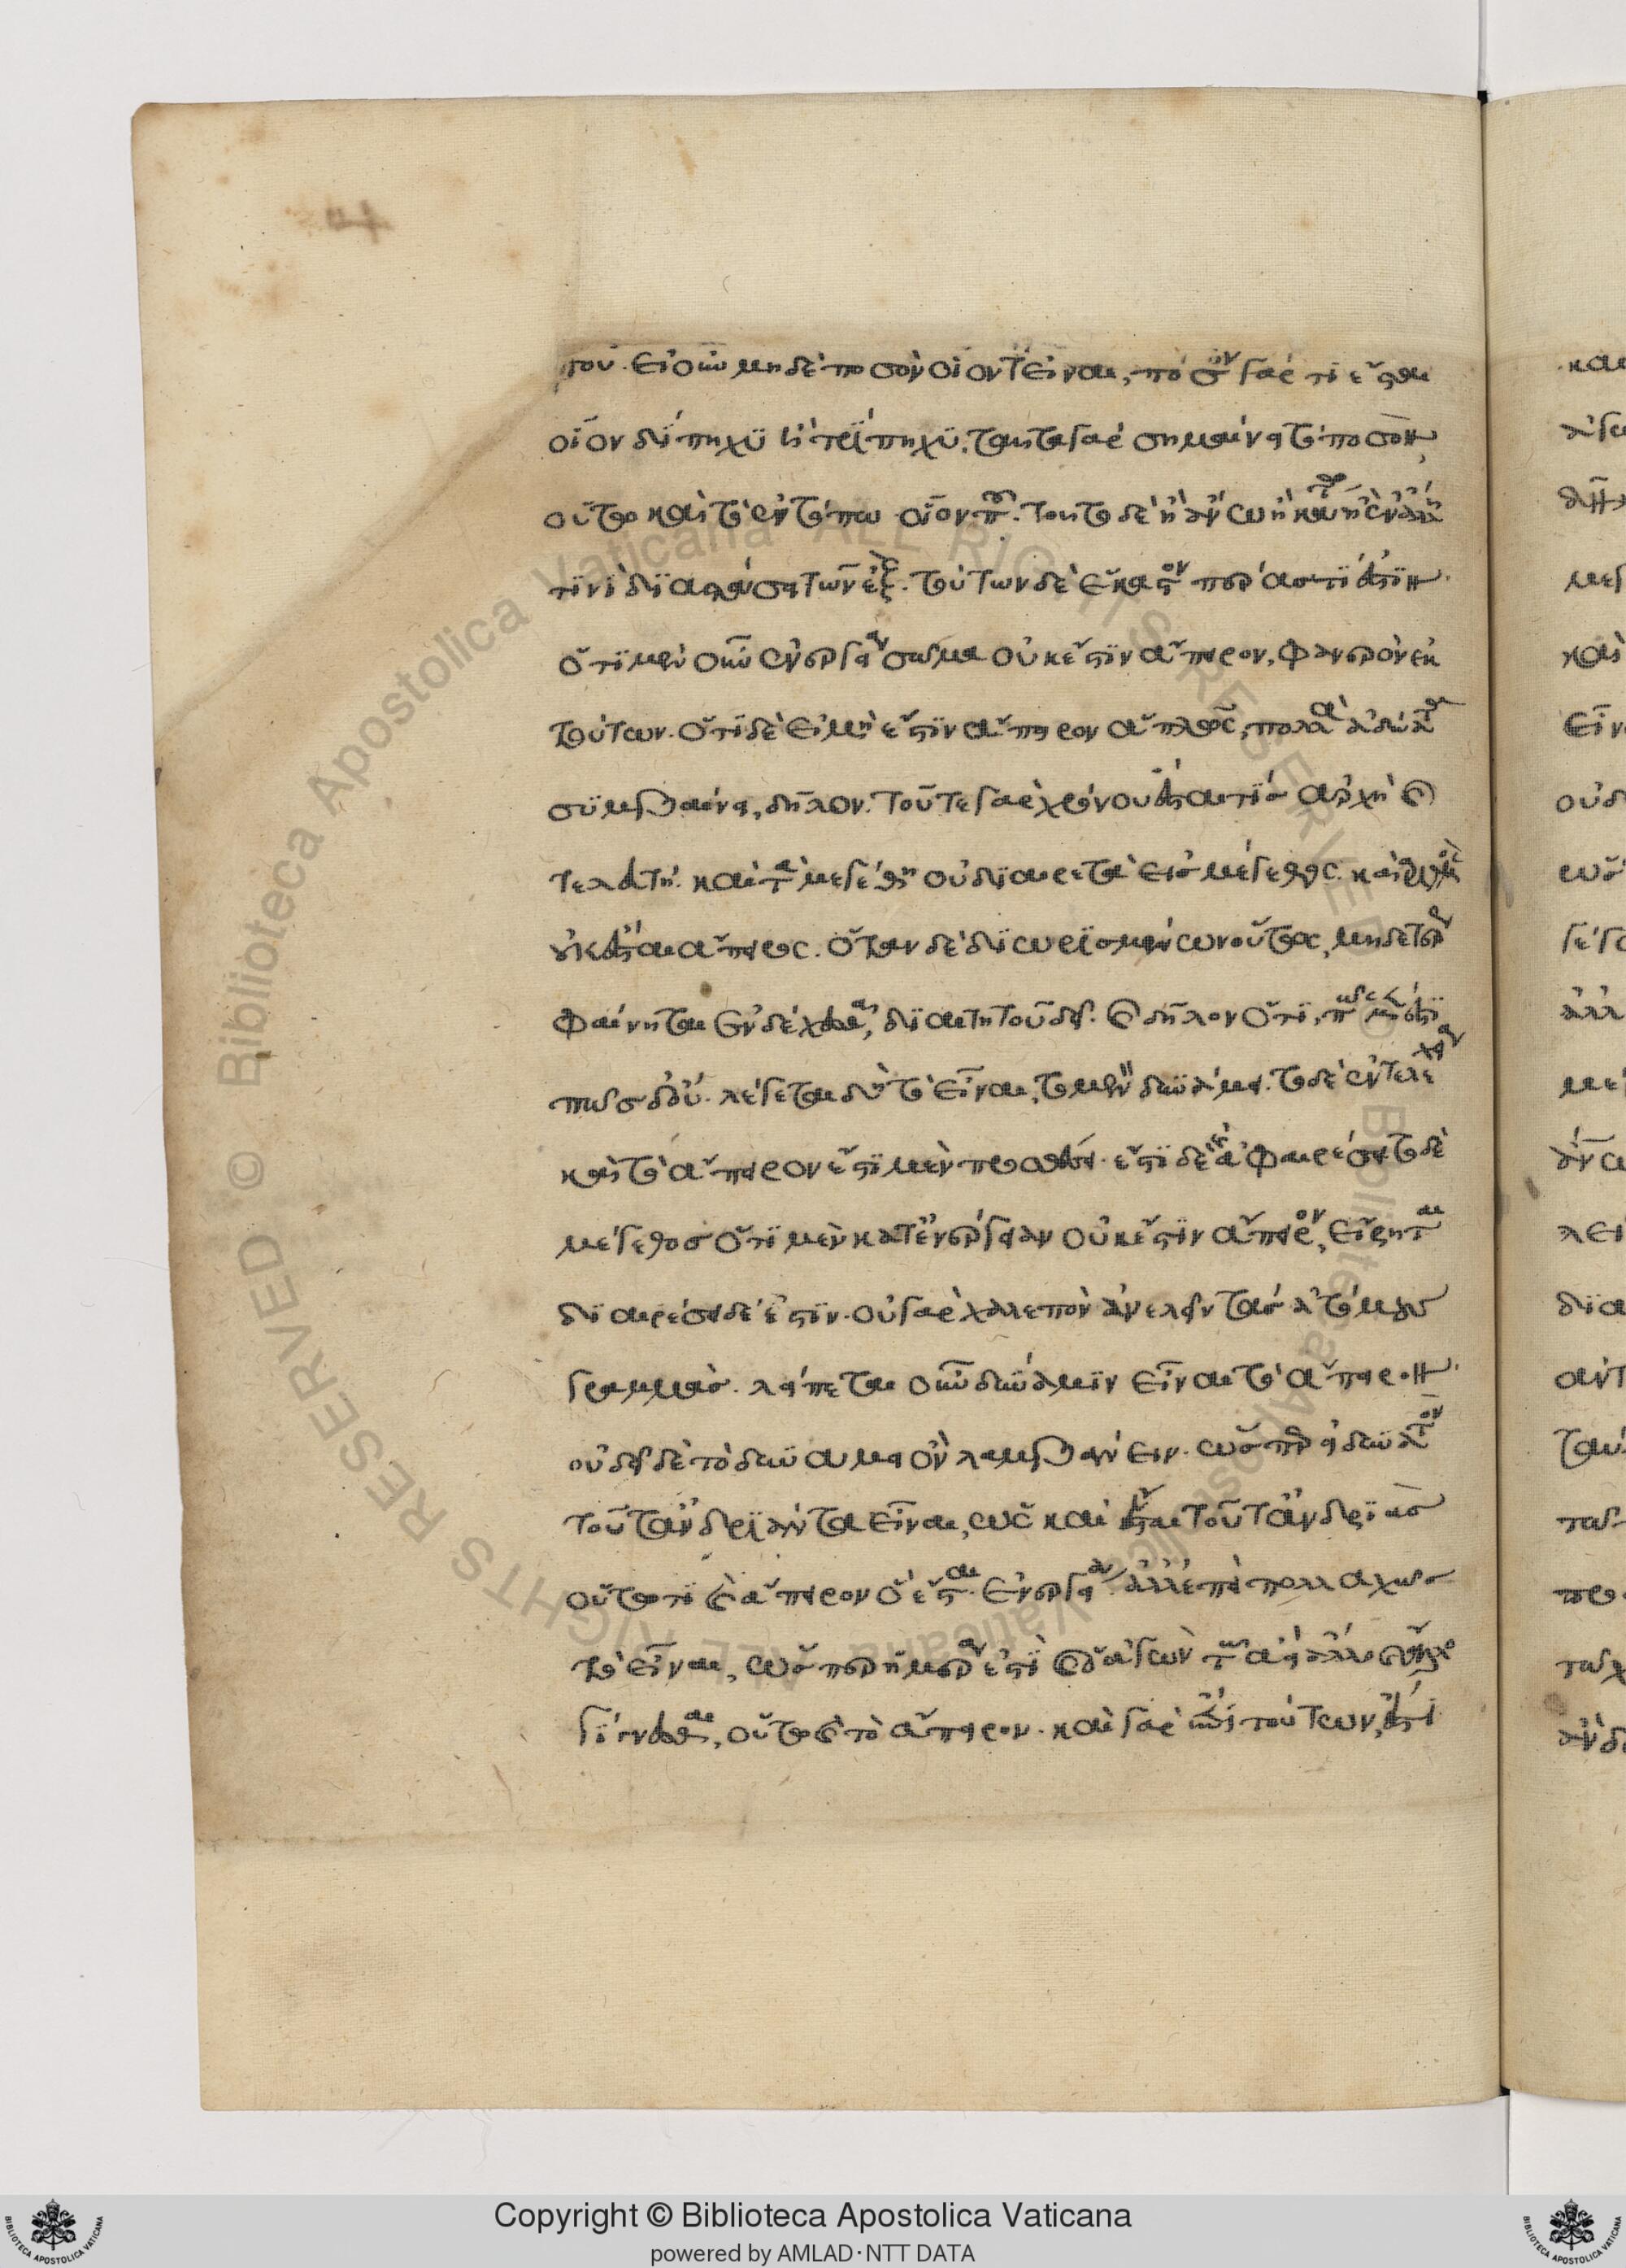 που. εἰ οὖν μηδὲ ποσὸν οἷόν τ' εἶναι, πόσον γάρ τι ἔσται
οἷον δίπηχυ ἢ τρίπηχυ. ταῦτα γὰρ σημαίνει τὸ ποσόν,
οὕτω καὶ τὸ ἐν τόπῳ οἷον ποῦ. τοῦτο δὲ ἢ ἄνω ἢ κάτω ἢ ἐν ἄλλῃ
τινὶ διαστάσει τῶν ἕξ. τούτων δὲ ἕκαστον πέρας τί ἐστιν.
ὅτι μὲν οὖν ἐνεργείᾳ σῶμα οὐκ ἔστιν ἄπειρον, φανερὸν ἐκ
τούτων. ὅτι δὲ εἰ μὴ ἔστιν ἄπειρον ἁπλῶς, πολλὰ ἀδύνατα
συμβαίνει, δῆλον. τοῦ τε γὰρ χρόνου ἔσται τὶς ἀρχὴ καὶ
τελευτή. καὶ τὰ μεγέθη οὐ διαιρετὰ εἰς μεγέθη. καὶ ἀριθμὸς
οὐκ ἔσται ἄπειρος. ὅταν δὲ διωρισμένων οὕτως, μηδετέρως
φαίνηται ἐνδέχεσθαι, διαιτητοῦ δεῖ. καὶ δῆλον ὅτι, πῶς μέν ἐστι
πῶς δ' οὔ. λέγεται δὴ τὸ εἶναι, τὸ μὲν δυνάμει. τὸ δὲ ἐντελεχείᾳ
καὶ τὸ ἄπειρον ἔστι μὲν προσθέσει. ἔστι δὲ καὶ ἀφαιρέσει τὸ δὲ
μέγεθος ὅτι μὲν κατ' ἐνέργειαν οὐκ ἔστιν ἄπειρον, εἴρηται
διαιρέσει δέ ἐστιν. οὐ γὰρ χαλεπὸν ἀνελεῖν τὰς ἀτόμους
γραμμάς. λείπεται οὖν δυνάμει εἶναι τὸ ἄπειρον.
οὐ δεῖ δὲ τὸ δυνάμει ὂν λαμβάνειν. ὥσπερ εἰ δυνατὸν
τοῦτ' ἀνδριάντα εἶναι, ὡς καὶ ἔσται τοῦτ' ἀνδριάς
οὕτω τι καὶ ἄπειρον ὃ ἔσται ἐνεργείᾳ. ἀλλ' ἐπεὶ πολλαχῶς
τὸ εἶναι, ὥσπερ ἡμέρα ἐστὶ καὶ ὁ ἀγὼν τῷ ἀεὶ ἄλλο καὶ ἄλλο
γίνεσθαι, οὕτω καὶ τὸ ἄπειρον. καὶ γὰρ ἐπὶ τούτων, ἔστι